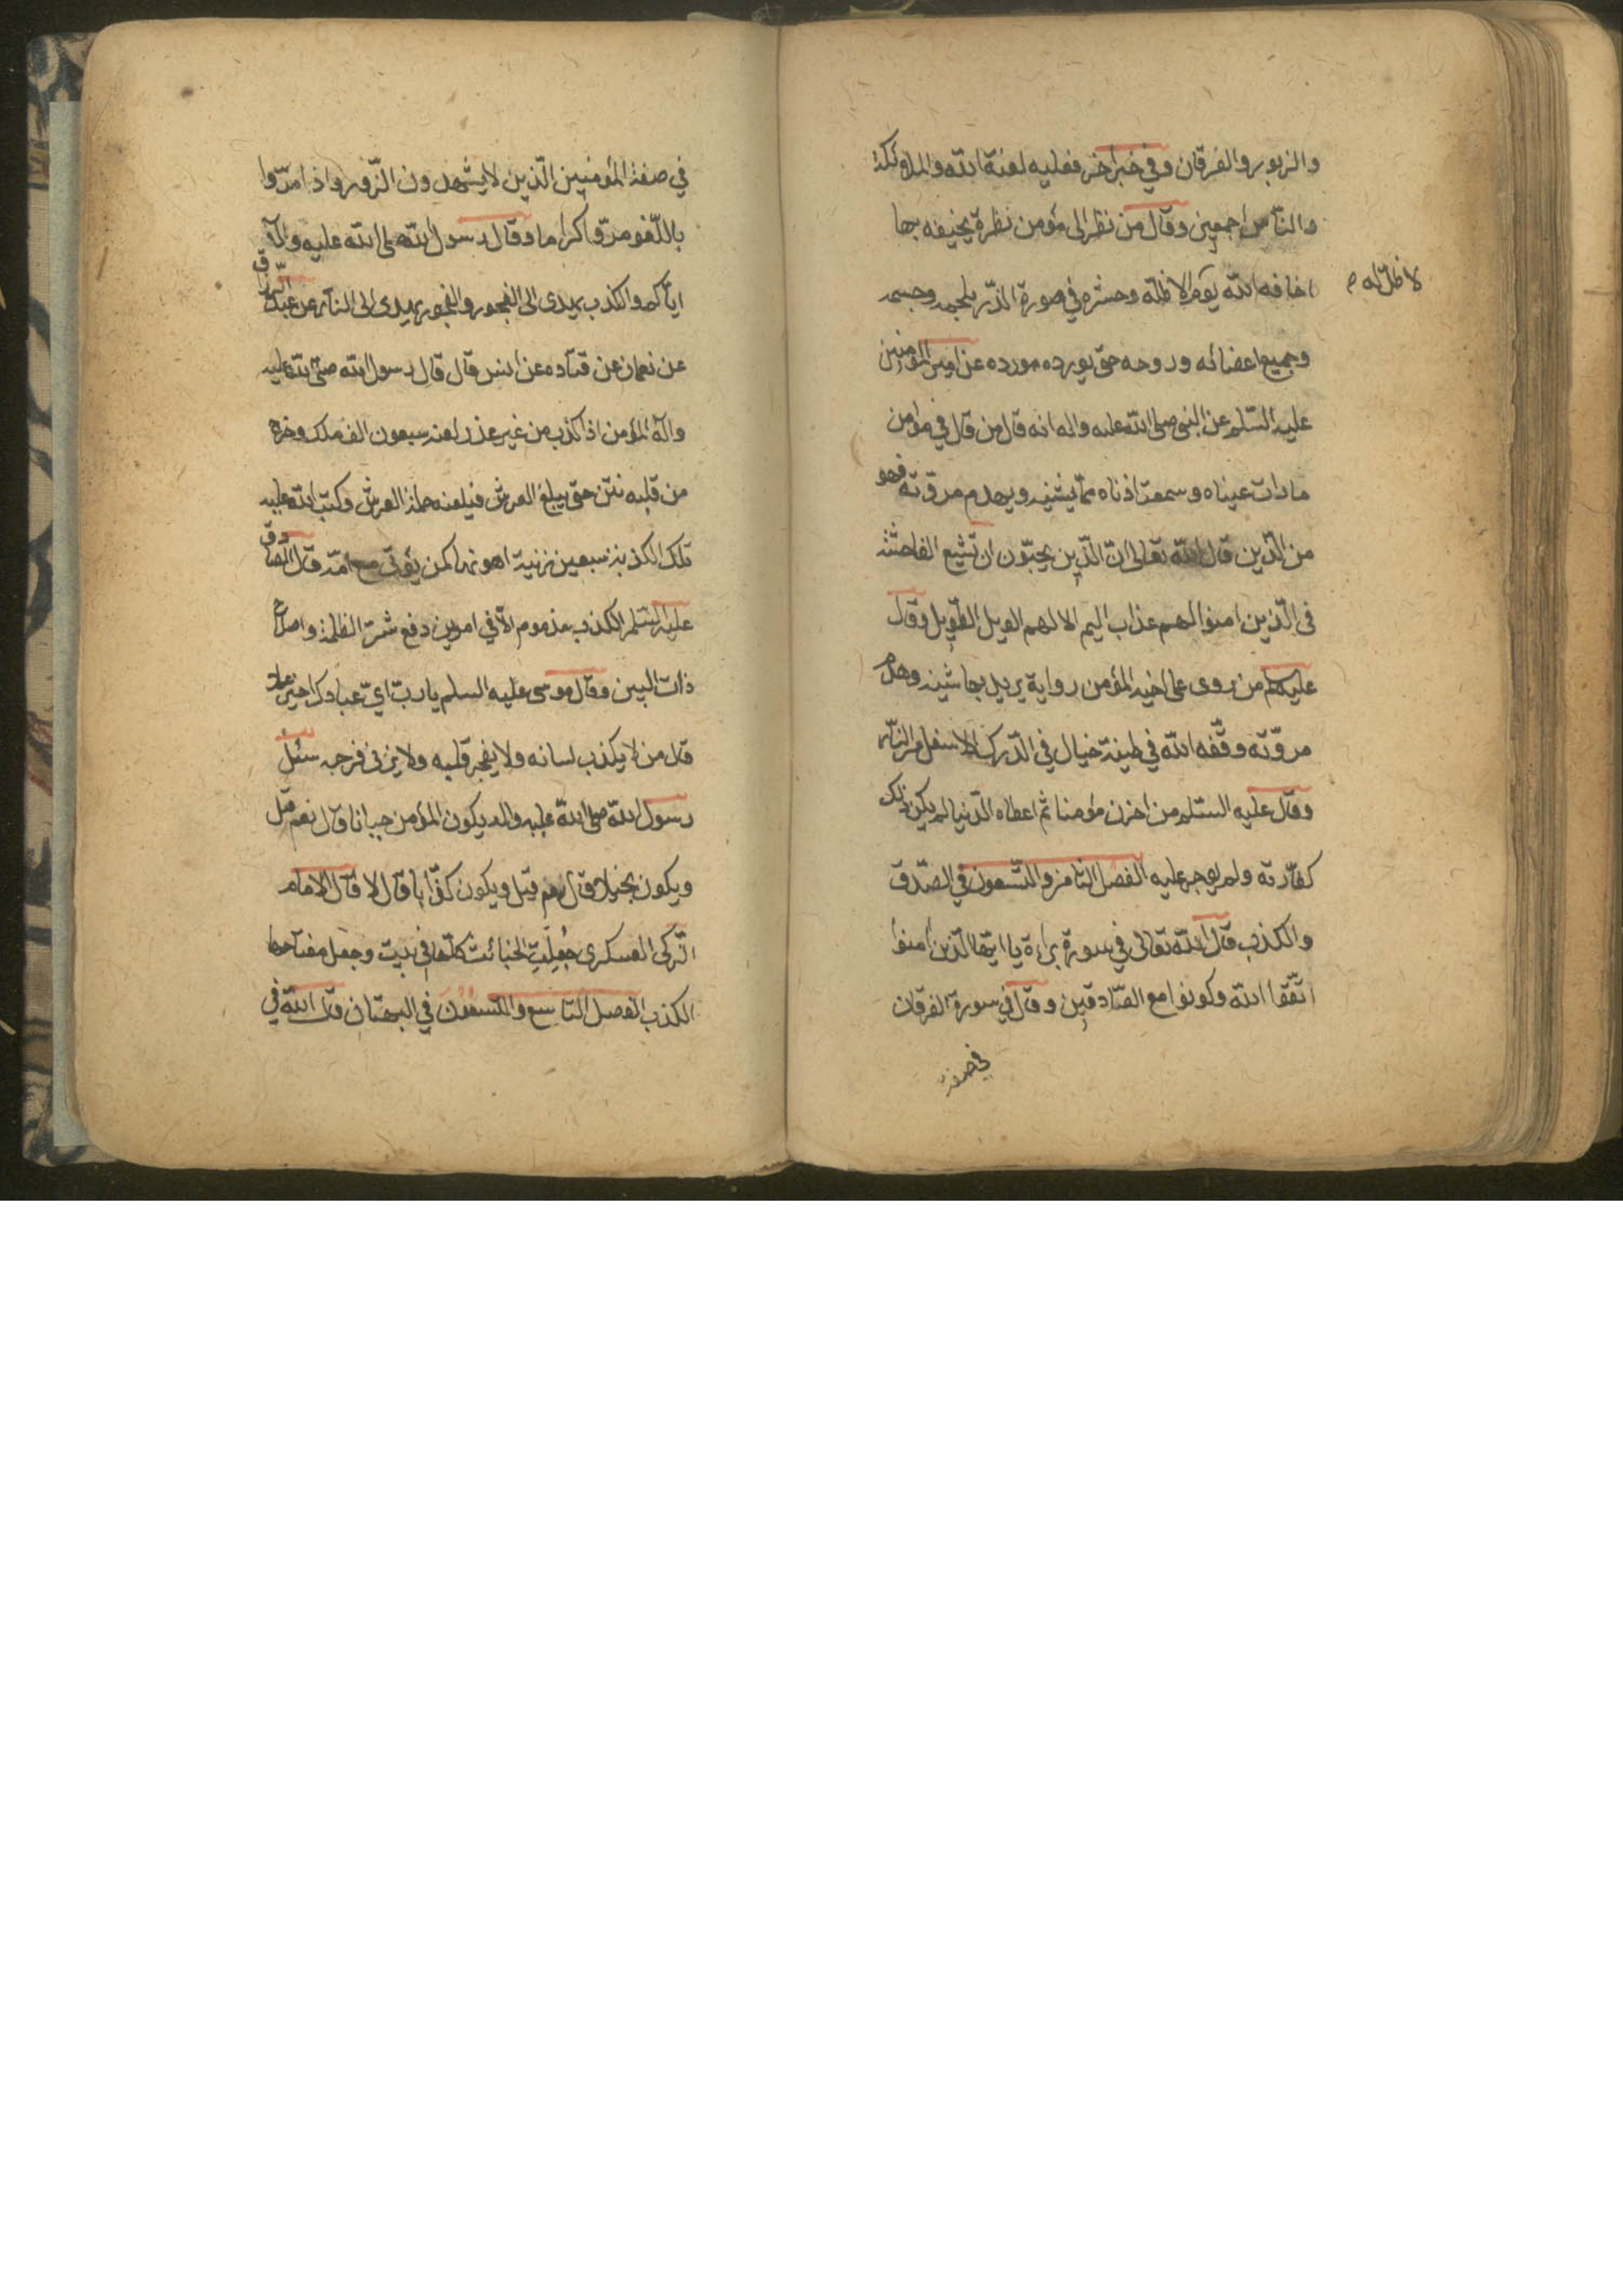 والزبور والفرقان وفي خبر اخر فعليه لعنة الله والملائكة
والناس اجمعين وقال من نظر الى مؤمن نظرة يخيفه بها
اخافه الله يوم لا ظل الا ظله وحشره في صورة الذر بلحمه وجسمه
لا ظل له م
وجميع اعضائه وروحه حتى يورده مورده عن امير المؤمنين
عليه السلم عن النبي صلى الله عليه واله انه قال من قال في مؤمن
ما رات عيناه وسمعت اذناه مما يشينه ويهدم مروته فهو
من الذين قال الله تعالى ان الذين يحبون ان تشيع الفاحشة
في الذين امنوا لهم عذاب اليم الا لهم الويل الطويل وقال
عليه السلم من روى على اخيه المؤمن رواية يريد بها شينه وهدم
مروته وقفه الله في طينة خبال في الدرك الاسفل من النار
وقال عليه السلم من احزن مؤمنا ثم اعطاه الدنيا لم يكن ذلك
كفارته ولم يوجر عليه الفصل الثامن والتسعون في الصدق
والكذب قال الله تعالى في سورة براءة يا ايها الذين امنوا
اتقوا الله وكونوا مع الصادقين وقال في سورة الفرقان
في صفة
في صفة المؤمنين الذين لا يشهدون الزور واذا مروا
باللغو مروا كراما وقال رسول الله صلى الله عليه وآله
اياكم والكذب يهدى الى الفجور والفجور يهدى الى النار عن عبد الرزاق
عن نعمان عن قتاده عن انس قال قال رسول الله صلى الله عليه
وآله المؤمن اذا كذب من غير عذر لعنه سبعون الف ملك وخرج
من قلبه نتن حتى يبلغ العرش فيلعنه حملة العرش وكتب الله عليه
تلك الكذبة سبعين زنية اهونها كمن يؤتى مع امه قال الصادق
عليه السلم الكذب مذموم الا في امرين دفع شر الظلمة واصلاح
ذات البين وقال موسى عليه السلم يا رب اي عبادك خير عملا
قال من لا يكذب لسانه ولا يفجر قلبه ولا يزني فرجه سئل
رسول الله صلى الله عليه واله يكون المؤمن جبانا قال نعم قيل
ويكون بخيلا قال نعم قيل ويكون كذابا قال لا قال الامام
الزكى العسكرى جُعِلَتِ الخبائث كلها في بيت وجعل مفتاحها
الكذب الفصل التاسع والتسعون في البهتان قال الله في